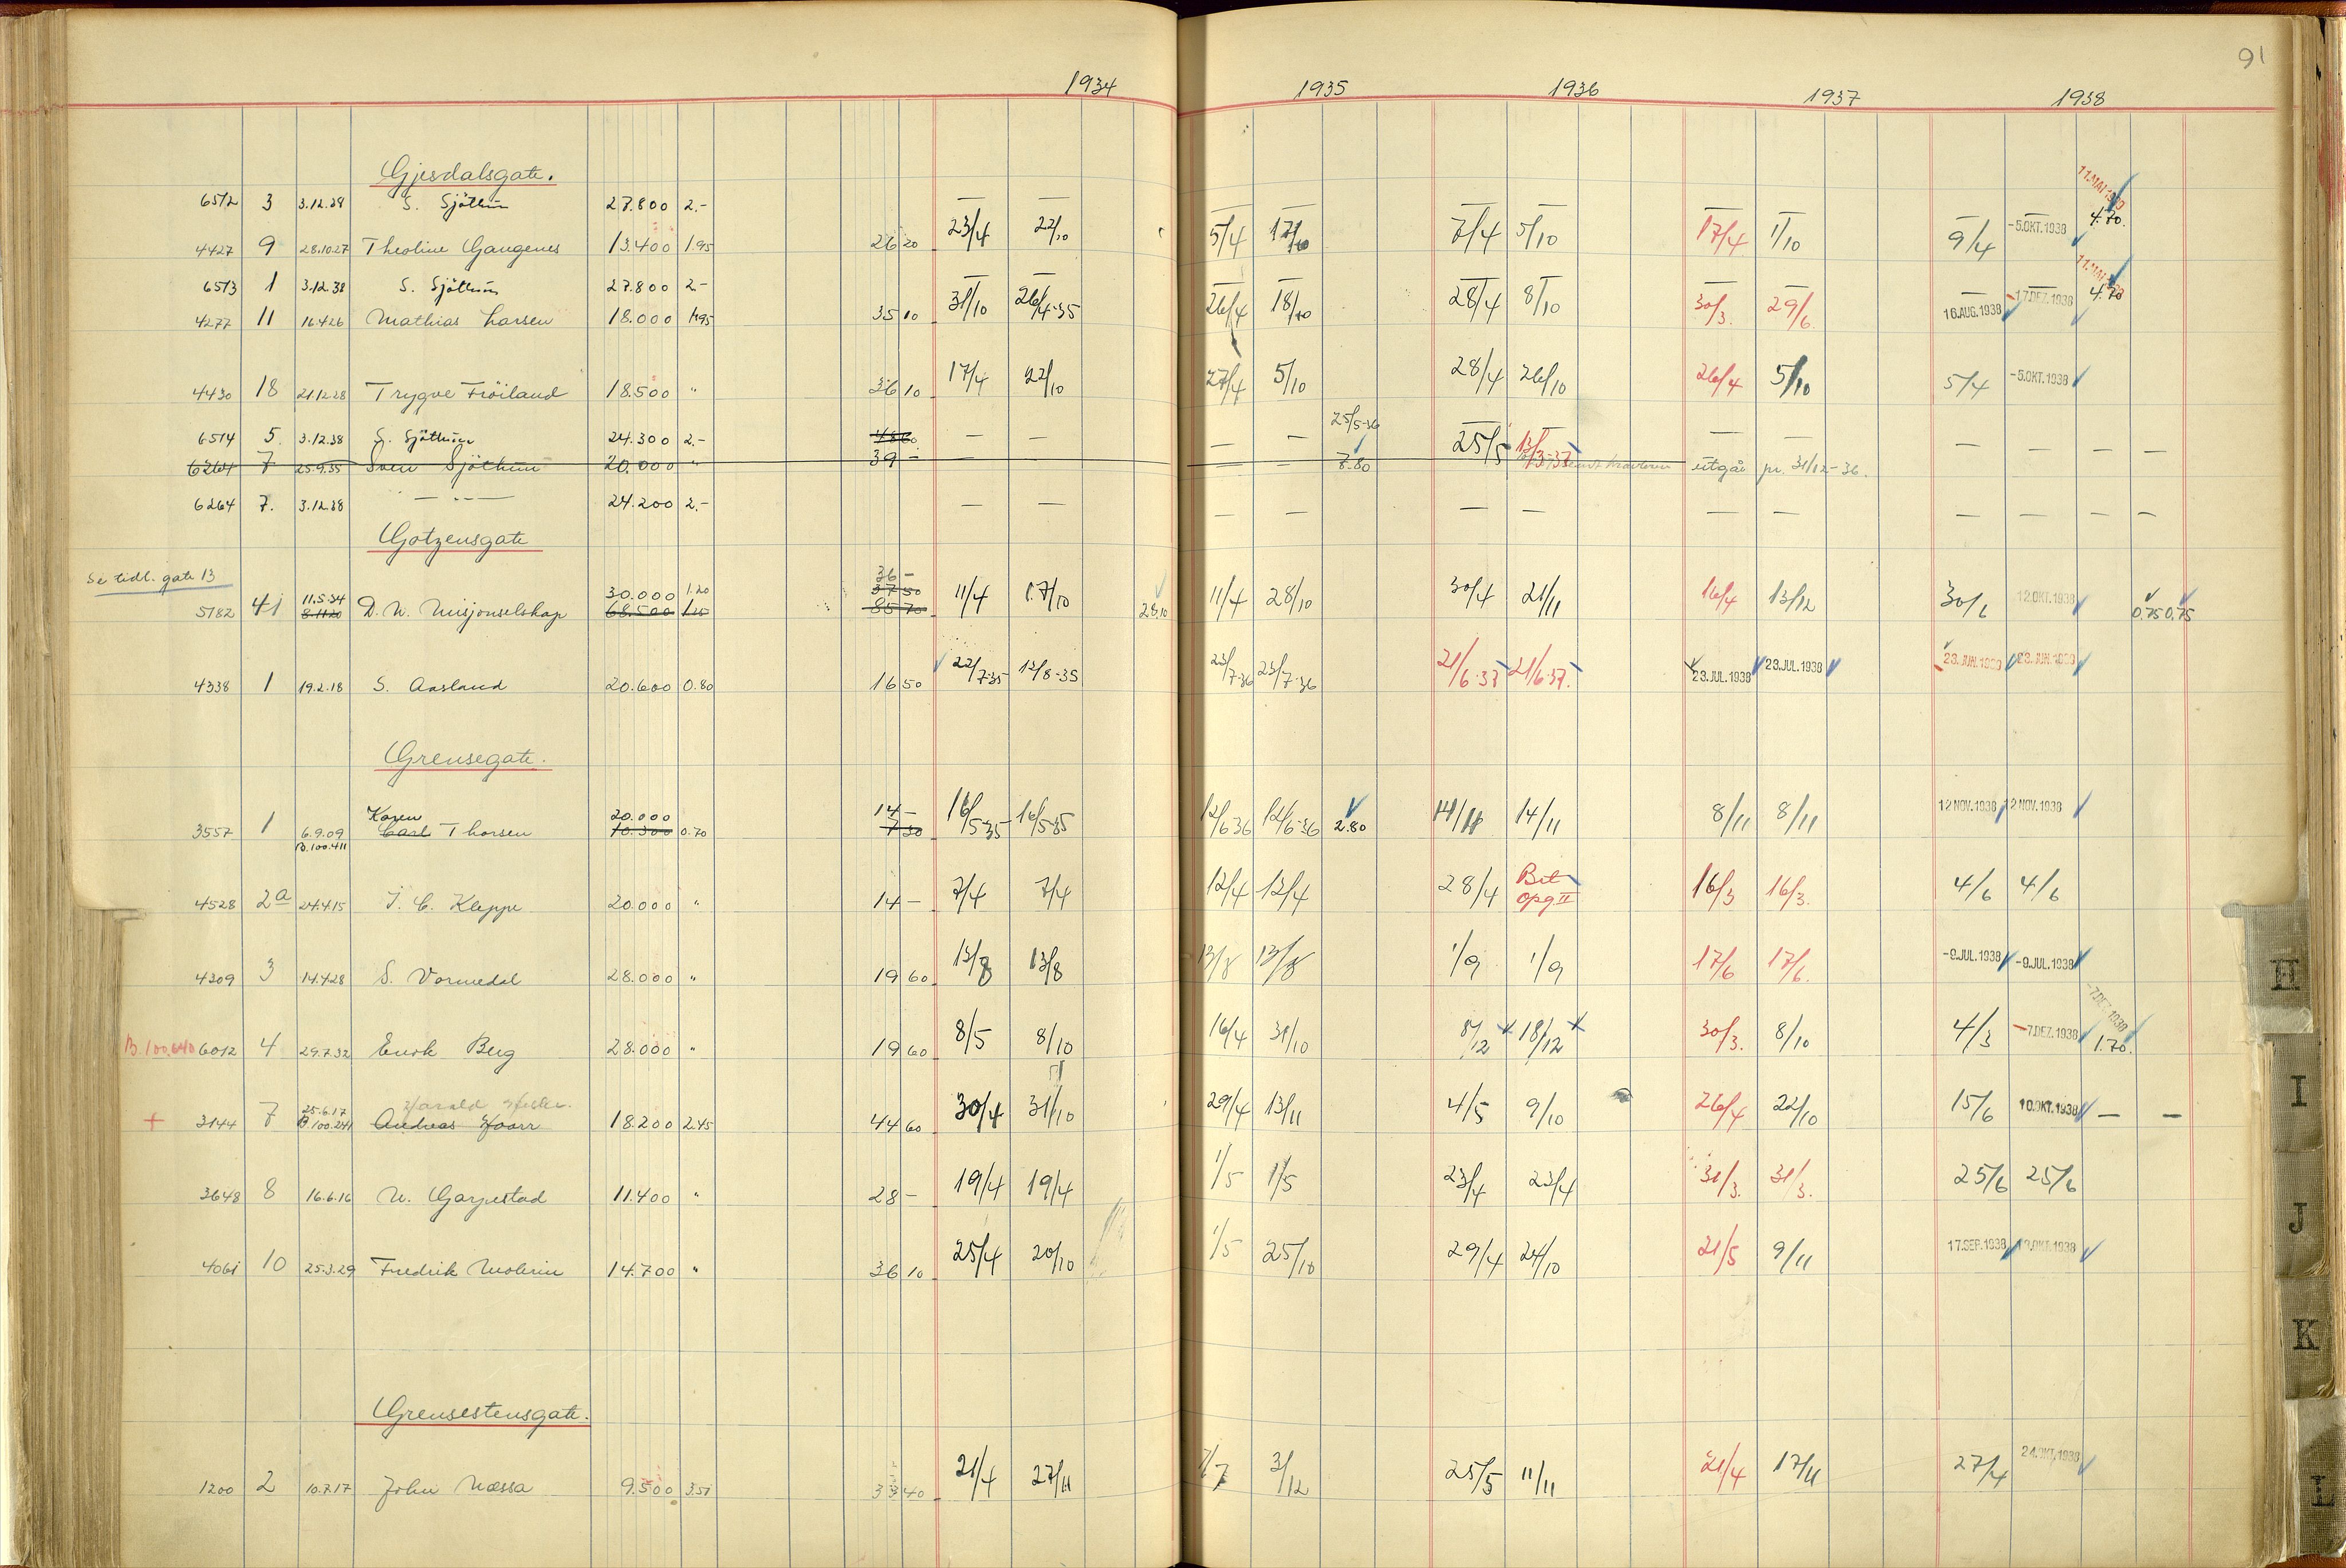 91
1934 1935 1936 1937 1938
Gjesdalsgate.
11.MAI 1939
6512 3 3.12.38 S. Sjöthun 27.800 2.- — — — — — — — — — — 4.70.
4427 9 28.10.27 Theoline Gaugenes 13.400 1.95 26 20 23/4 22/10 5/4 17/10 7/4 5/10 17/4 1/10 9/4 -5.OKT.1938
6513 1 3.12.38 S. Sjöthun 27.800 2- — — — — — — — — — — 4.70
4277 11 16.4.26 Mathias Larsen 18.000 1.95 35 10 31/10 26/4-35 26/4 18/10 28/4 8/10 30/3. 29/6. 16.AUG.1938 17.DEZ.1938
4430 18 21.12.28 Trygve Fröiland 18.500 " 36 10 17/4 22/10 27/4 5/10 28/4 26/10 26/4 5/10 5/4 -5.OKT.1938
25/5-36
6514 5. 3.12.38 S. Sjöthun 24.300 2.- — — — — — — — — — —
6264 7 25.9.35 Sven Sjöthun 20.000 " 39 - — — 7.80 25/5 13/3-37 utgår pr. 31/12-36.
6264 7. 3.12.38 — " — 24.200 2.- — — — — — — — — — — — —
Gotzensgate
Se tidl. gate 13
36 -
11.5.34 30.000 1.20 37 50
5182 41 8.11.20 D. N. Misjonselskap 68.500 1.25 85 70 11/4 17/10 28.10 11/4 28/10 30/4 21/11 16/4 13/12 30/6 12.OKT.1938 0.75 0.75
4338 1 19.2.18 S. Aasland 20.600 0.80 16 50 22/7-35 12/8-35 23/7-36 23/7-36 21/6-37 21/6-37. 23.JUL.1938 23.JUL.1938 23.JUN.1939 23.JUN.1939
Grensegate.
Karen 20.000 14 -
3557 1 6.9.09 Carl Thorsen 10.300 0.70 7 30 16/5-35 16/5-35 12/6-36 12/6-36 2.80 14/11 14/11 8/11 8/11 12 NOV.1938 12 NOV.1938
B.100.411
4528 2a 24.4.15 J. C. Kleppe 20.000 " 14 - 7/4 7/4 12/4 12/4 28/4 Bet opg II 16/3 16/3. 4/6 4/6
4309 3 14.4.28 S. Vormedal 28.000 " 19 60 13/8 13/8 13/8 13/8 1/9 1/9 17/6 17/6. -9.JUL.1938 -9.JUL.1938
-7.DEZ.1938
B.100.640 6012 4 29.7.32 Enok Berg 28.000 " 19 60 8/5 8/10 16/4 31/10 8/12 18/12 30/3. 8/10 4/3 -7.DEZ.1938 1.70.
25.6.17 Harald
+ 3144 7 B.100.241 Andreas Haarr 18.200 2.45 44 60 30/4 31/10 29/4 13/11 4/5 9/10 26/4 22/10 15/6 10.OKT.1938 — —
3648 8 16.6.16 N. Garpestad 11.400 " 28 - 19/4 19/4 1/5 1/5 23/4 23/4 31/3. 31/3. 25/6 25/6
4061 10 25.3.29 Fredrik Molerin 14.700 " 36 10 25/4 20/10 1/5 25/10 29/4 24/10 21/5 9/11 17.SEP.1938 19.OKT.1938
Grensestensgate.
1200 2 10.7.17 John Næssa 9.500 3.51 33 40 21/4 27/11 3/12 25/5 11/11 21/4 17/11 27/4 24.OKT.1938
H
I
J
K
L